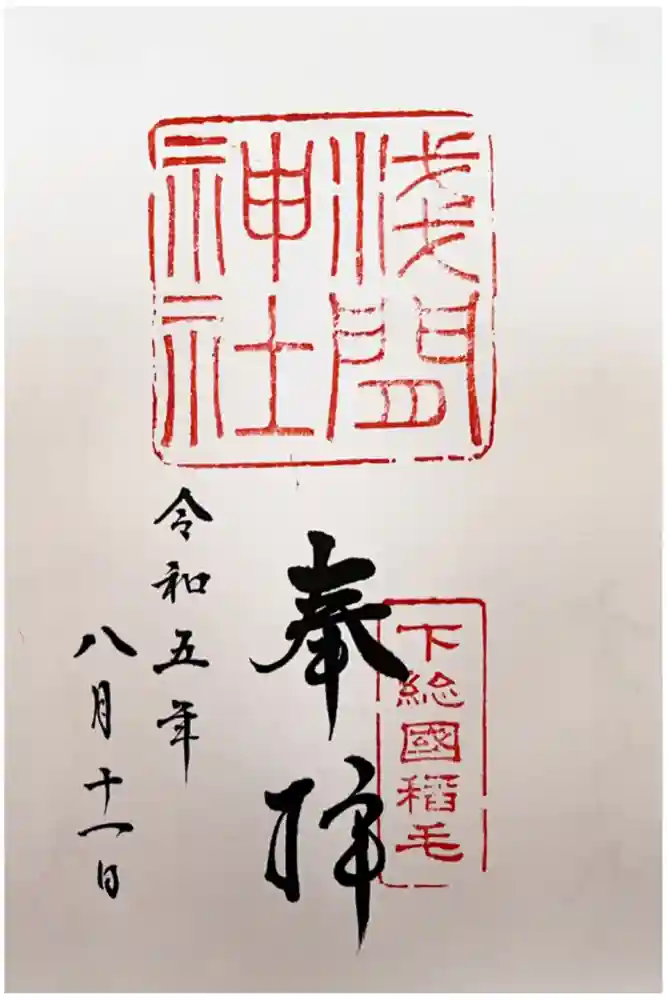 浅間
神社
下総國稲毛
奉拝
令和五年
八月十一日